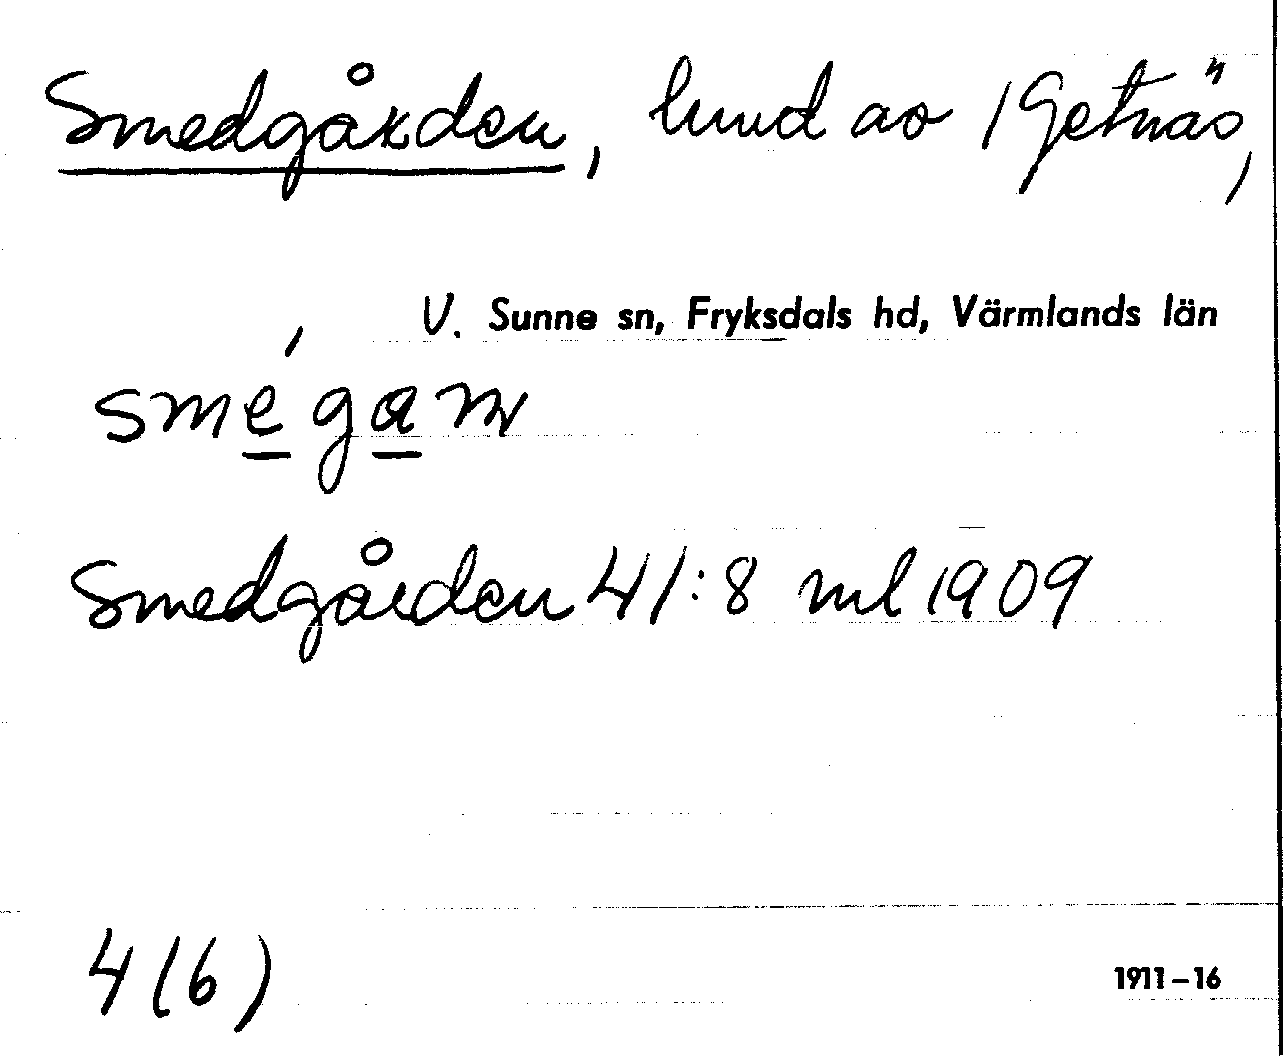 Smedgården, lund av 1 Getnäs,
V. Sunne sn, Fryksdals hd, Värmlands län
smégan
Smedgården 41:8 ml 1909
4 (6)
1911–16